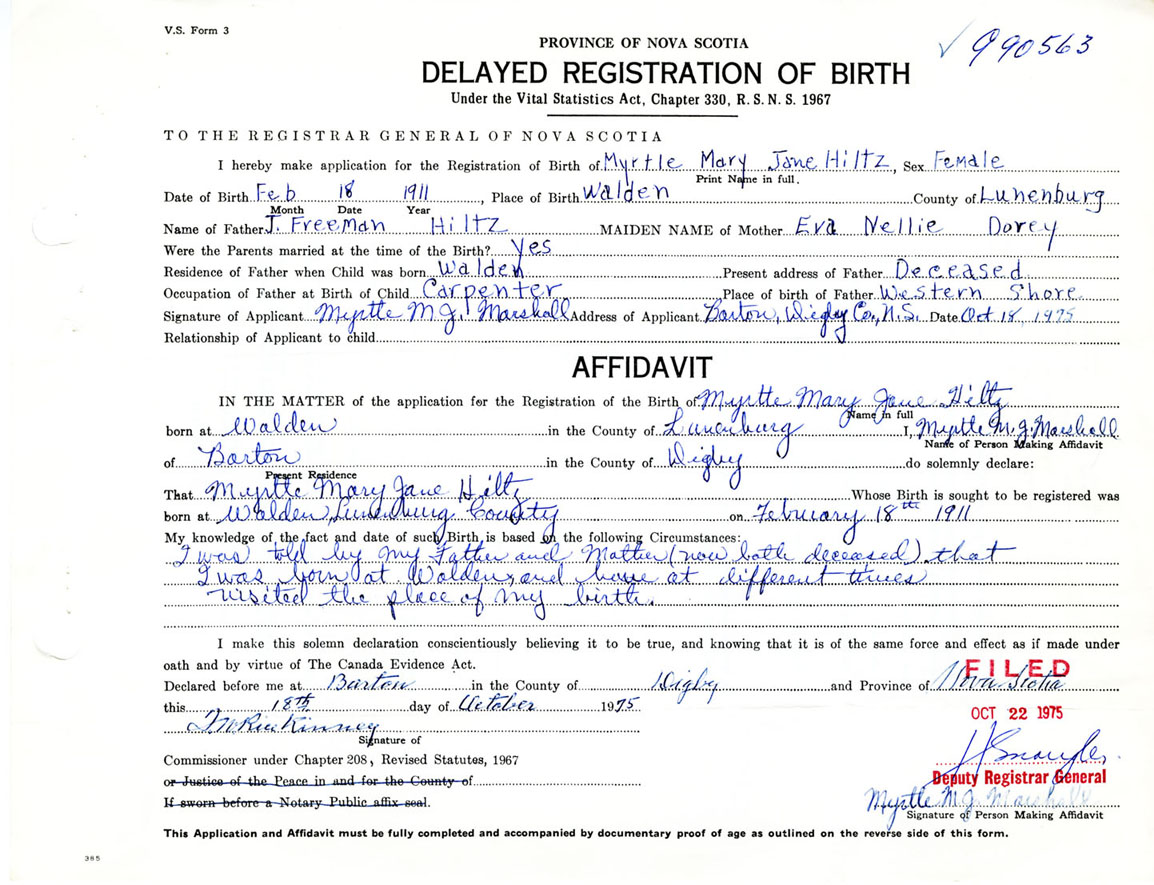 V.S. Form 3
990563
PROVINCE OF NOVA SCOTIA
DELAYED REGISTRATION OF BIRTH
Under the Vital Statistics Act, Chapter 330, R. S. N. S. 1967
TO THE REGISTRAR GENERAL OF NOVA SCOTIA
I hereby make application for the Registration of Birth of Myrtle Mary Jane Hiltz, Sex Female
Print Name in full.
Date of Birth Feb 18 1911, Place of Birth Walden County of Lunenburg
Month Date Year
Name of Father J. Freeman Hiltz MAIDEN NAME of Mother Eva Nellie Dorey
Were the Parents married at the time of the Birth? Yes
Residence of Father when Child was born Walden Present address of Father Deceased
Occupation of Father at Birth of Child Carpenter Place of birth of Father Western Shore
Signature of Applicant Myrtle M.J. Marshall Address of Applicant Barton, Digby Co., N.S. Date Oct 18, 1975
Relationship of Applicant to child
AFFIDAVIT
IN THE MATTER of the application for the Registration of the Birth of Myrtle Mary Jane Hiltz
Name in full
born at Walden in the County of Lunenburg I, Myrtle M.J. Marshall
Name of Person Making Affidavit
of Barton in the County of Digby do solemnly declare:
Present Residence
That Myrtle Mary Jane Hiltz Whose Birth is sought to be registered was
born at Walden, Lunenburg County on February 18th 1911
My knowledge of the fact and date of such Birth is based on the following Circumstances:
I was told by my Father and Mother (now both deceased) that
I was born at Walden, and have at different times
visited the place of my birth.
I make this solemn declaration conscientiously believing it to be true, and knowing that it is of the same force and effect as if made under
oath and by virtue of The Canada Evidence Act.
FILED
Declared before me at Barton in the County of Digby and Province of Nova Scotia
this 18th day of October 1975
OCT 22 1975
Signature of
Commissioner under Chapter 208, Revised Statutes, 1967
or Justice of the Peace in and for the County of
Deputy Registrar General
If sworn before a Notary Public affix seal.
Myrtle M.J. Marshall
Signature of Person Making Affidavit
This Application and Affidavit must be fully completed and accompanied by documentary proof of age as outlined on the reverse side of this form.
365